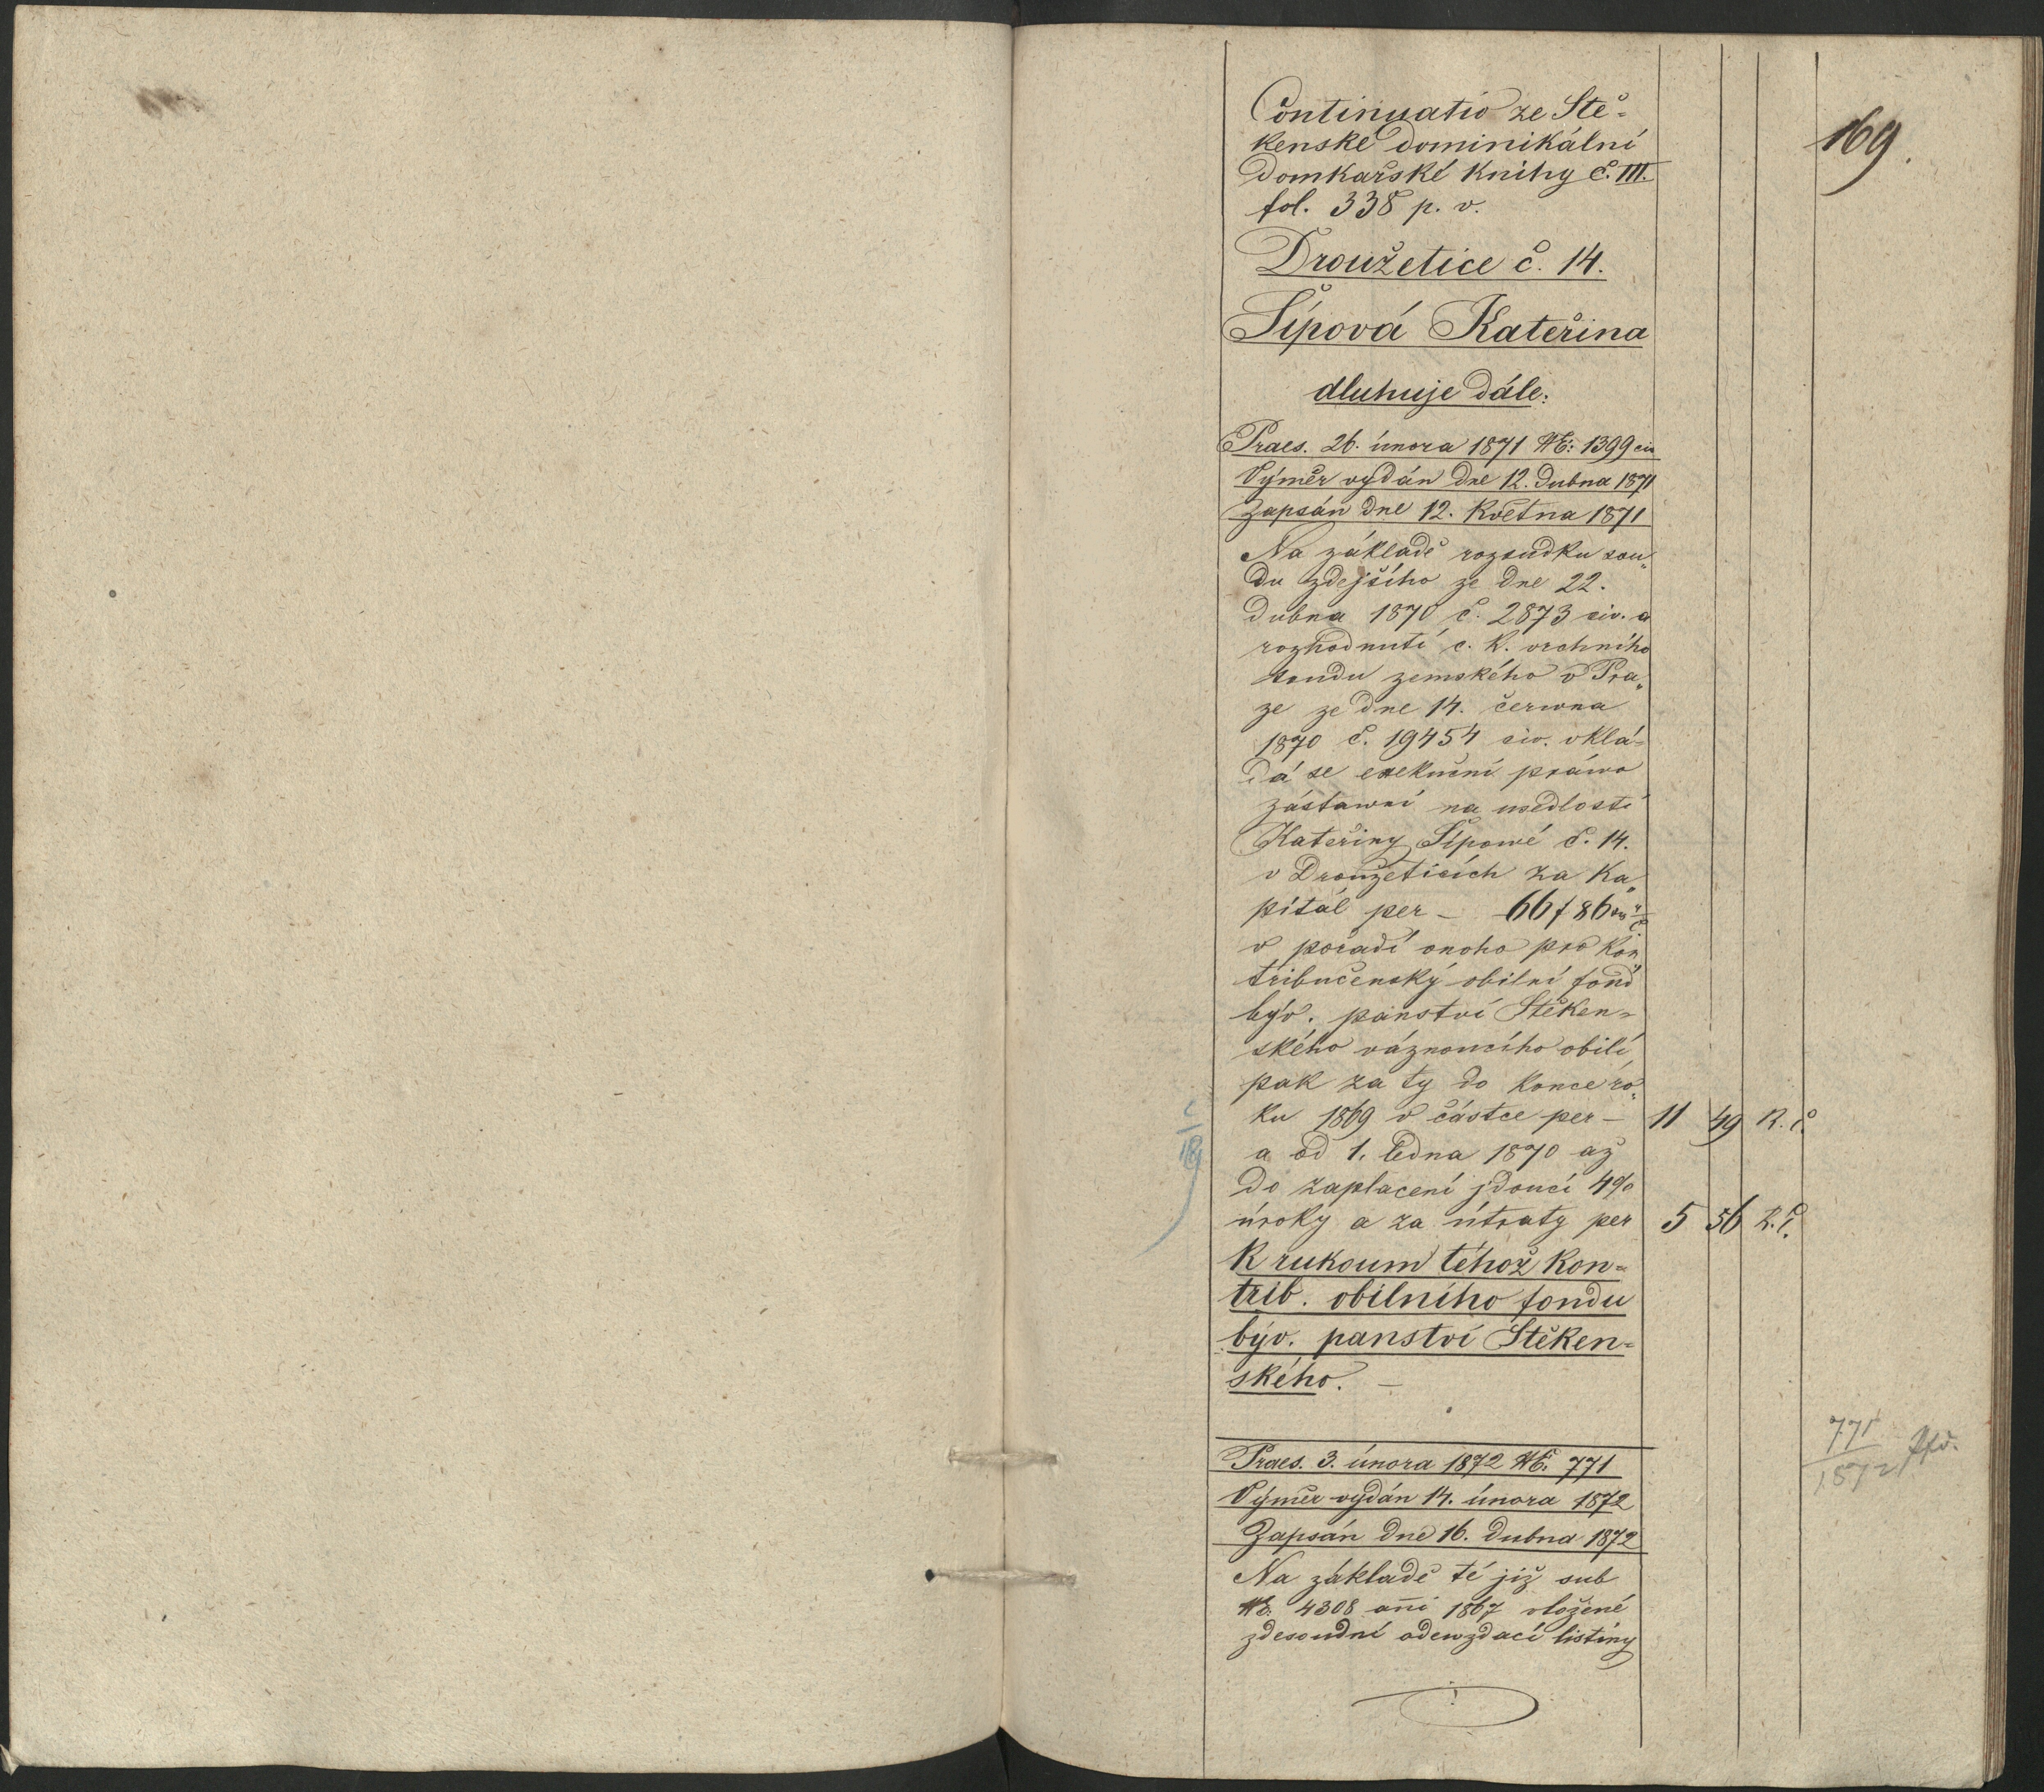 169.
Continuatio ze Ště-
kenské dominikální
domkařské knihy č. III.
fol. 338 p. v.
Droužetice č. 14.
Šípová Kateřina
dluhuje dále:
Praes. 26. února 1871 NE: 1399 civ
Výměr vydán dne 12. dubna 1871
Zapsán dne 12. Května 1871
Na základě rozsudku sou„
du zdejšího ze dne 22.
dubna 1870 č. 2873 civ. a
rozhodnutí c. k. vrchního
soudu zemského v Pra„
ze ze dne 14. června
1870 č. 19454 civ. vklá-
dá se exekuční práwo
zástawní na usedlosti
Kateřiny Šípowé č. 14.
v Droužeticích za Ka„
pitál per – 66 f 86
v pořadí onoho pro Kon„
tribučenský obilní fond
býv. panství Štěken-
ského váznoucího obilí,
pak za ty do konce ro„
ku 1869 v částce per – 11 49 R. č.
a od 1. ledna 1870 až
do zaplacení jdoucí 4%
úroky a za útraty per 5 56 R. č.
k rukoum téhož kon-
trib. obilního fondu
býv. panství Štěken-
ského. –
Praes. 3. února 1872 NE. 771
Výměr vydán 14. února 1872
Zapsán dne 16. dubna 1872
771
1872
Na základě té již sub
NE. 4308 ani 1867 vložené
zdesoudní odewzdací listiny